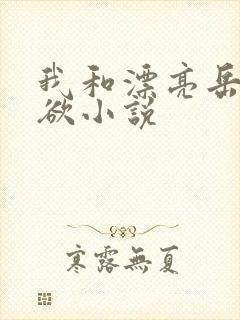 我和漂亮岳
欲小说
寒露無夏